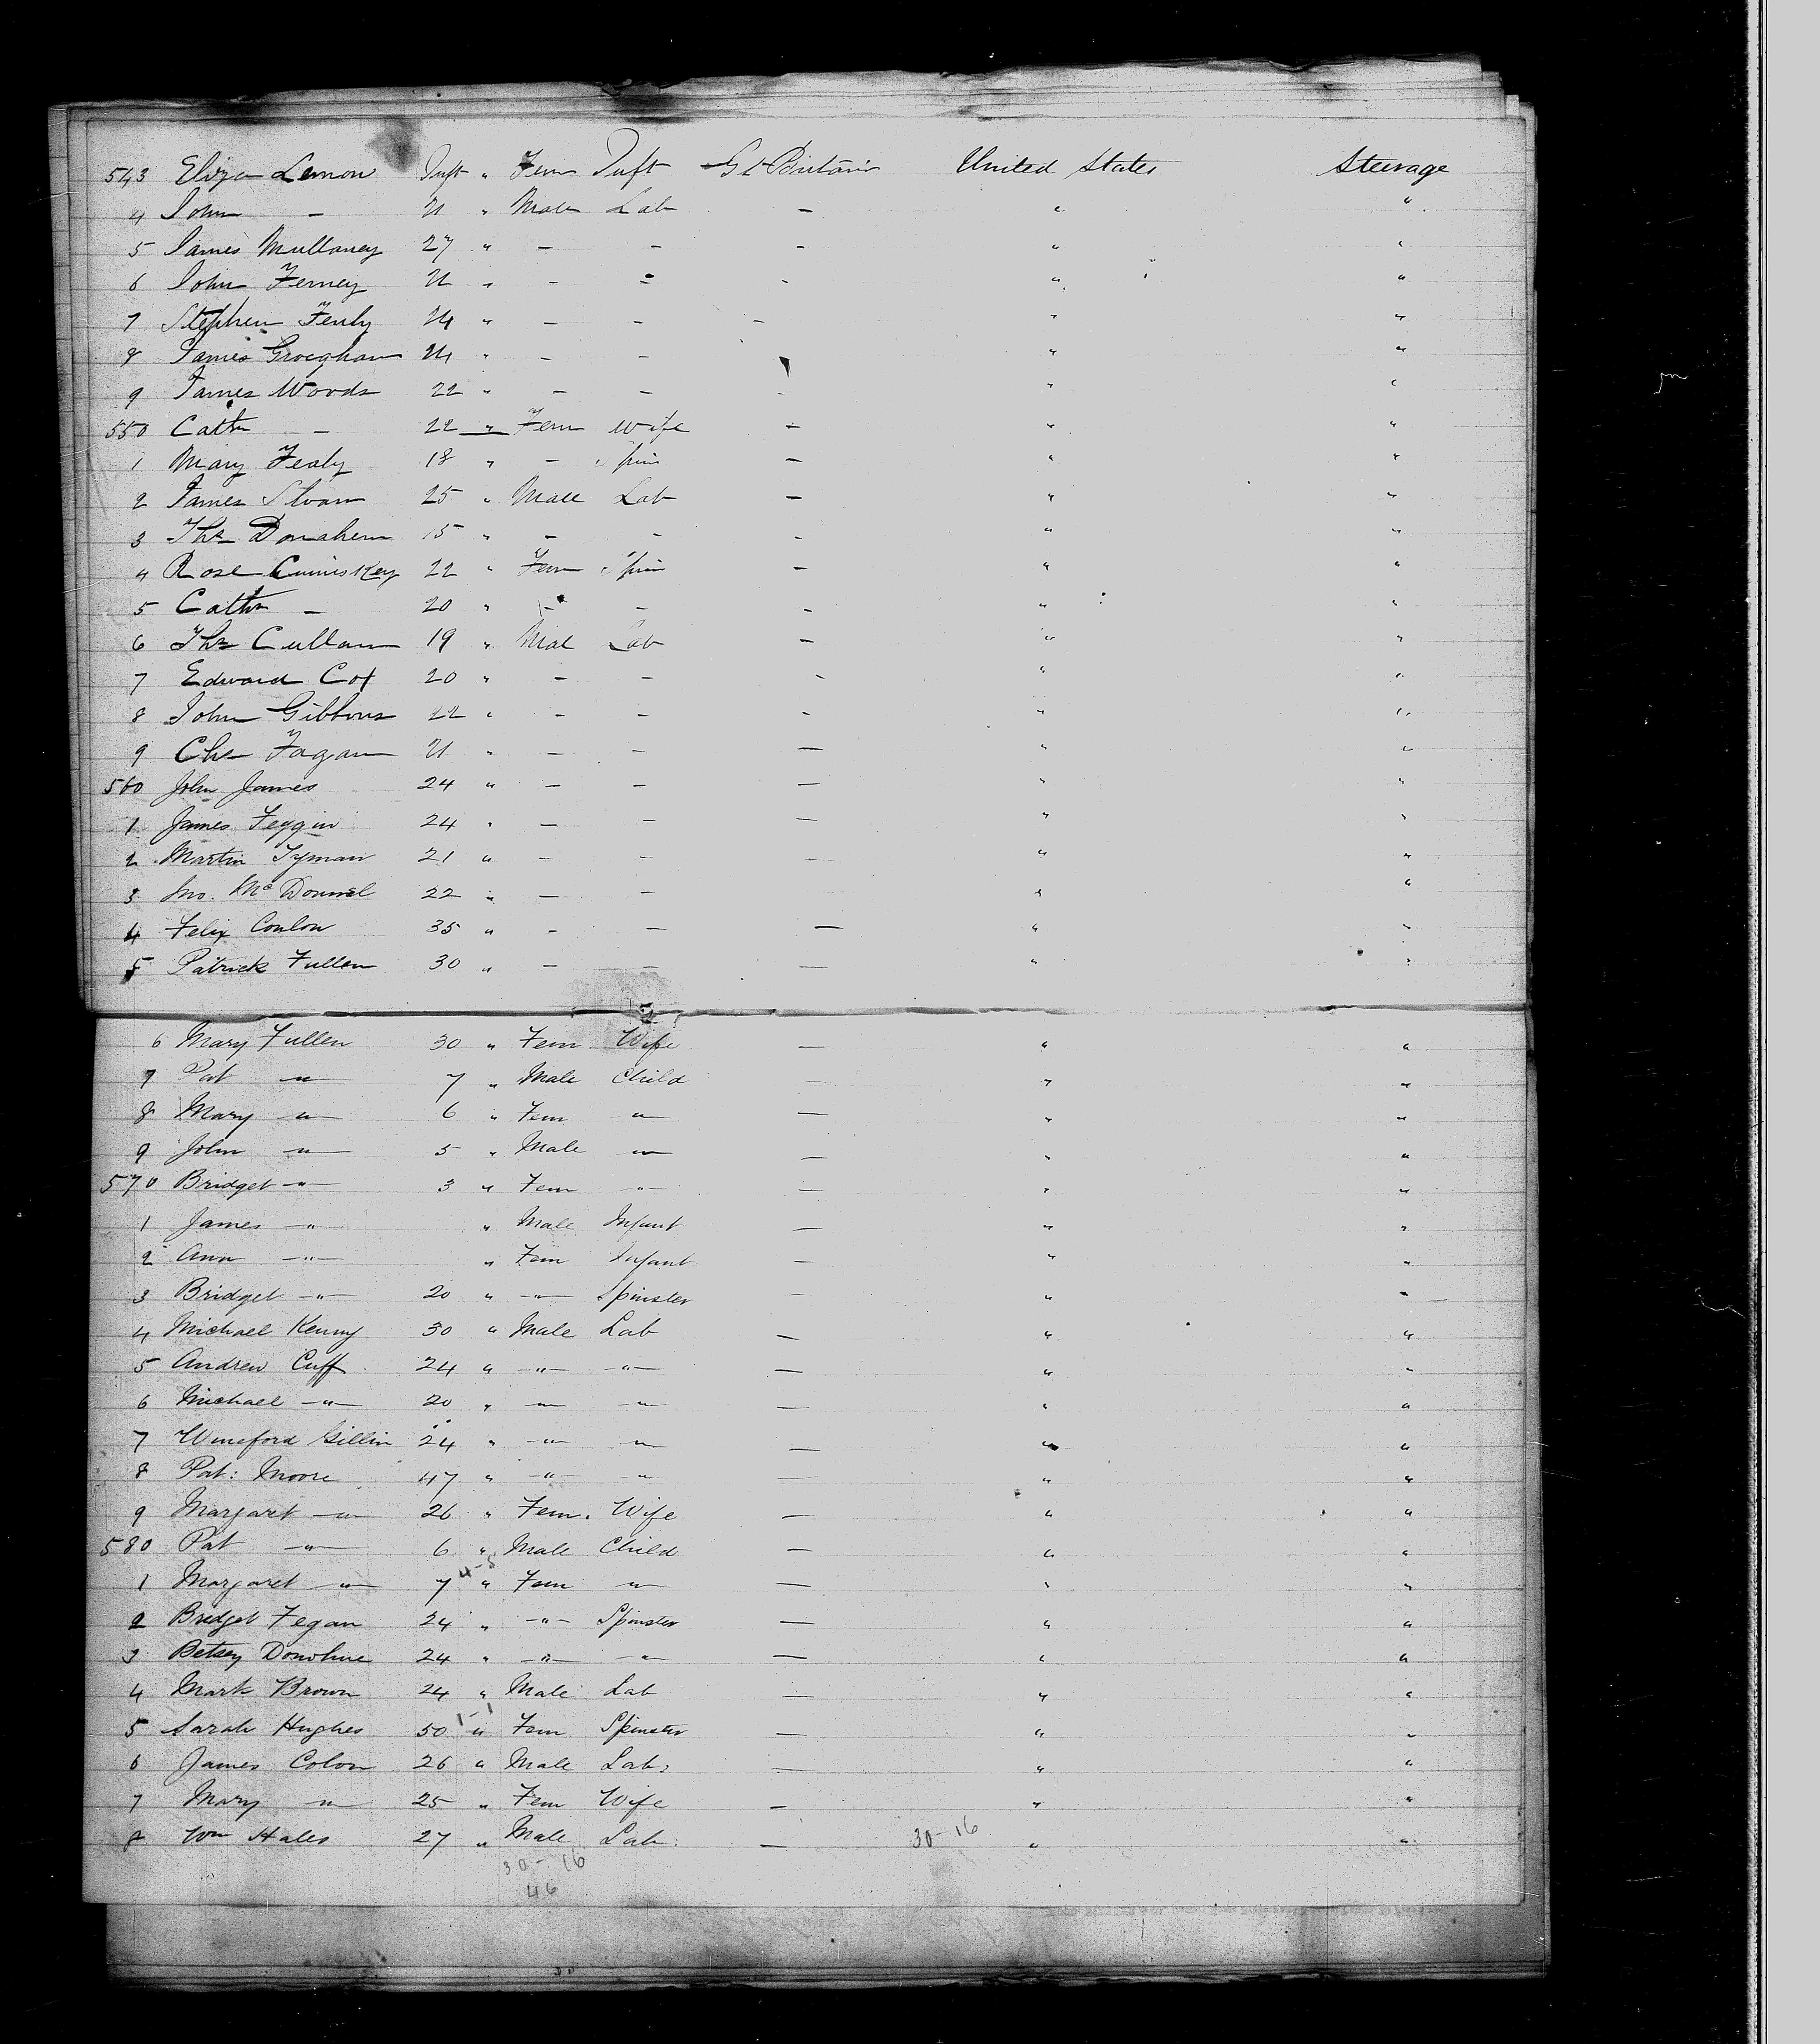 543 Eliza Lemon Inft " Fem Inft Gt Britain United States Steerage
4 John — 21 " Male Lab — " "
5 James Mullaney 27 " — — — " "
6 John Ferney 21 " - - - " "
7 Stephen Fenly 24 " — — — " "
8 James Groeghan 24 " — — " "
9 James Woods 22 " — — - " "
550 Cathn — 22 " Fem Wife — " "
1 Mary Fealy 18 " — Spin — " "
2 James Sloan 25 " Male Lab — " "
3 Ths Donahem 15 " — - - " "
4 Rose Cumiskey 22 " Fem Spin — " "
5 Cathn — 20 " — — — " "
6 Ths Cullam 19 " Mal Lab — " "
7 Edward Cox 20 " — — - " "
8 John Gibbons 22 " — — - " "
9 Chs Fagan 21 " — — — " "
560 John James 24 " — — — " "
1 James Feggin 24 " — — — " "
2 Martin Tyman 21 " — — — " "
3 Jno. McDonnel 22 " — — " "
4 Felix Conlon 35 " - — — " "
5 Patrick Fullen 30 " — — — " "
6 Mary Fullen 30 " Fem Wife — " "
7 Pat —"— 7 " Male Child — " "
8 Mary —"— 6 " Fem —"— — " "
9 John —"— 5 " Male —"— — " "
570 Bridget —"— 3 " Fem —"— — " "
1 James —"— " Male Infant — " "
2 Ann —"— " Fem Infant — " "
3 Bridget —"— 20 " —"— Spinster — " "
4 Michael Kenny 30 " Male Lab — " "
5 Andrew Cuff 24 " —"— —"— — " "
6 Michael —"— 20 " —"— —"— — " "
7 Wineford Gillin 24 " —"— —"— — " "
8 Pat: Moore 47 " —"— —"— — " "
9 Margaret —"— 26 " Fem. Wife — " "
580 Pat —"— 6 " Male Child — " "
1 Margaret —"— 7 4-5 " Fem —"— — " "
2 Bridget Fegan 24 " —"— Spinster — " "
3 Betsey Donohue 24 " —"— —"— — " "
4 Mark Brown 24 " Male Lab — " "
5 Sarah Hughes 50 1-1 " Fem Spinster — " "
6 James Colon 26 " Male Lab: — " "
7 Mary —"— 25 " Fem Wife — " "
8 Wm Hales 27 " Male Lab: — 30-16 " "
30-16
46